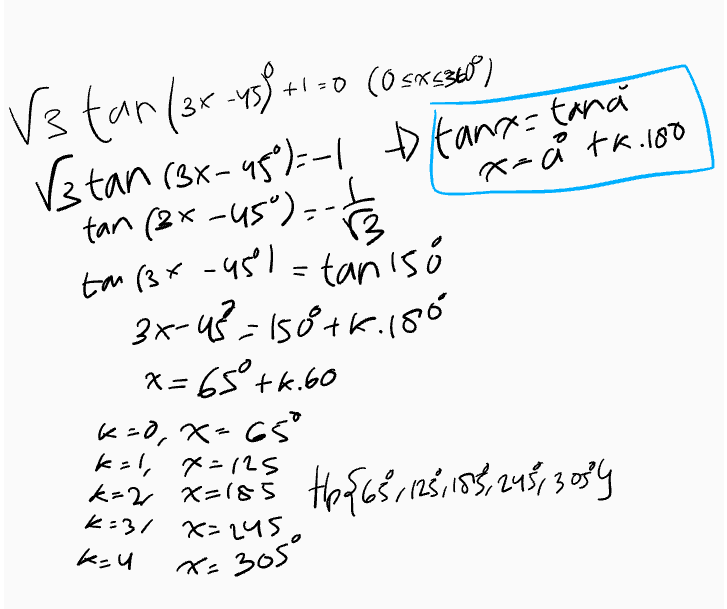 √3 tan(3x -45°) +1=0 (0≤x≤360°)
√3 tan (3x-45°)=-1 → tanx= tana°
x=a° +k.180
tan (3x -45°)=-1/√3
tan (3x -45°) = tan 150°
3x-45°=150°+k.180°
x=65°+k.60
k=0, x= 65°
k=1, x=125
k=2, x=185 Hp{65°,125°,185°,245°,305°}
k=3, x=245
k=4 x= 305°